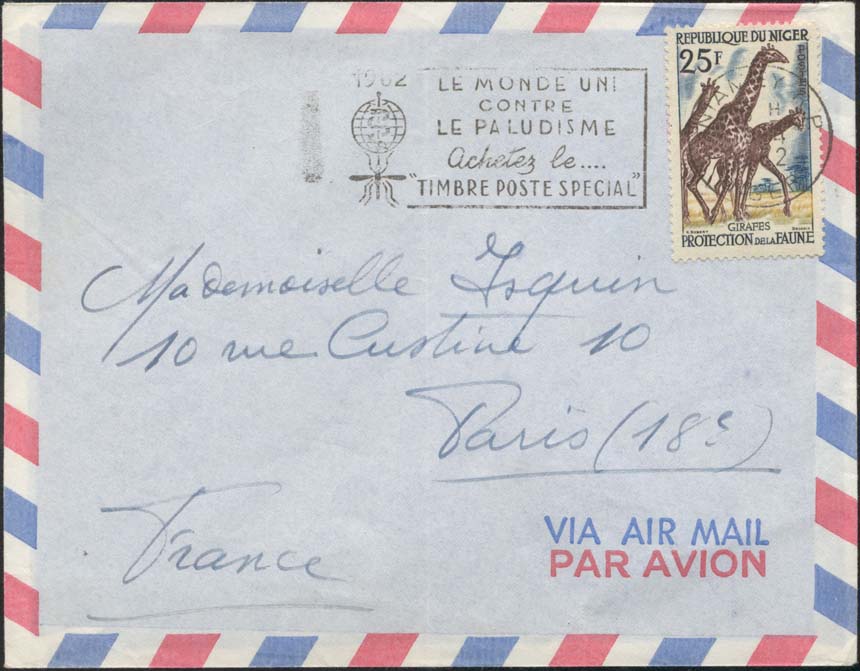 1962
LE MONDE UNI
CONTRE
LE PALUDISME
Achetez le....
"TIMBRE POSTE SPECIAL"
REPUBLIQUE DU NIGER
25F
GIRAFES
PROTECTION DE LA FAUNE
Mademoiselle Isquin
10 rue Custine 10
Paris (18e)
France
VIA AIR MAIL
PAR AVION